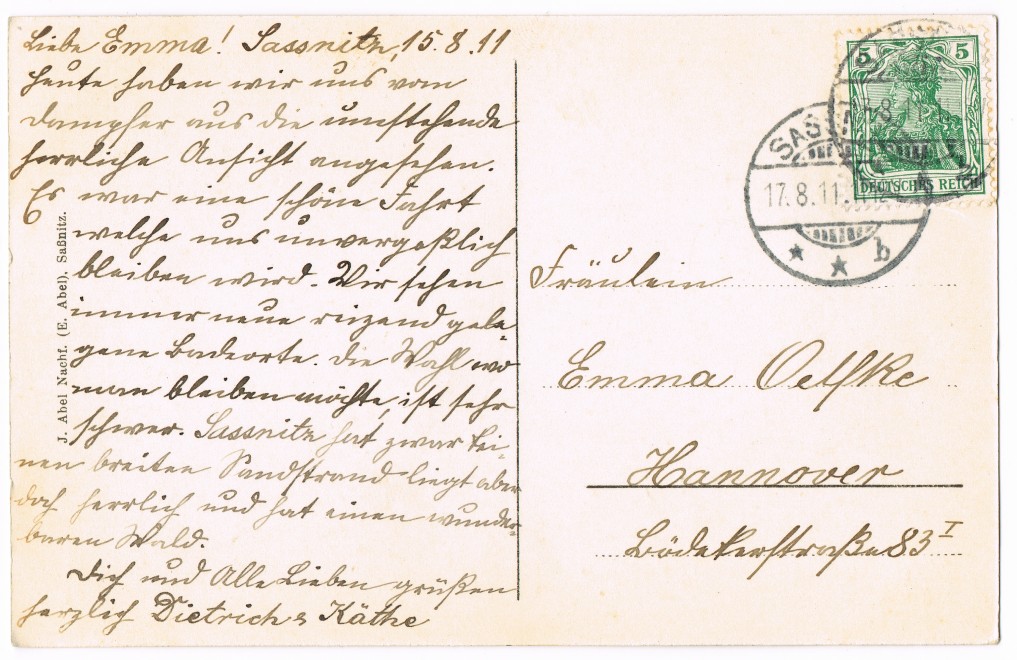 Liebe Emma! Sassnitz, 15.8.11
Heute haben wir uns vom
Dampfer aus die umstehende
herrliche Ansicht angesehen.
Es war eine schöne Fahrt
welche uns unvergeßlich
bleiben wird. Wir sehen
immer neue reizend gele
gene Badeorte. Die Wahl wo
man bleiben möchte, ist sehr
schwer. Sassnitz hat zwar kei-
nen breiten Sandstrand liegt aber
doch herrlich und hat einen wunder-
baren Wald.
Dich und Alle Lieben grüßen
herzlich Dietrich & Käthe
J. Abel Nachf. (E. Abel). Saßnitz.
5 5
DEUTSCHES REICH
SAS
17.8.11.
* * b
Fräulein
Emma Oelfke
Hannover
Bödekerstraße 83 I